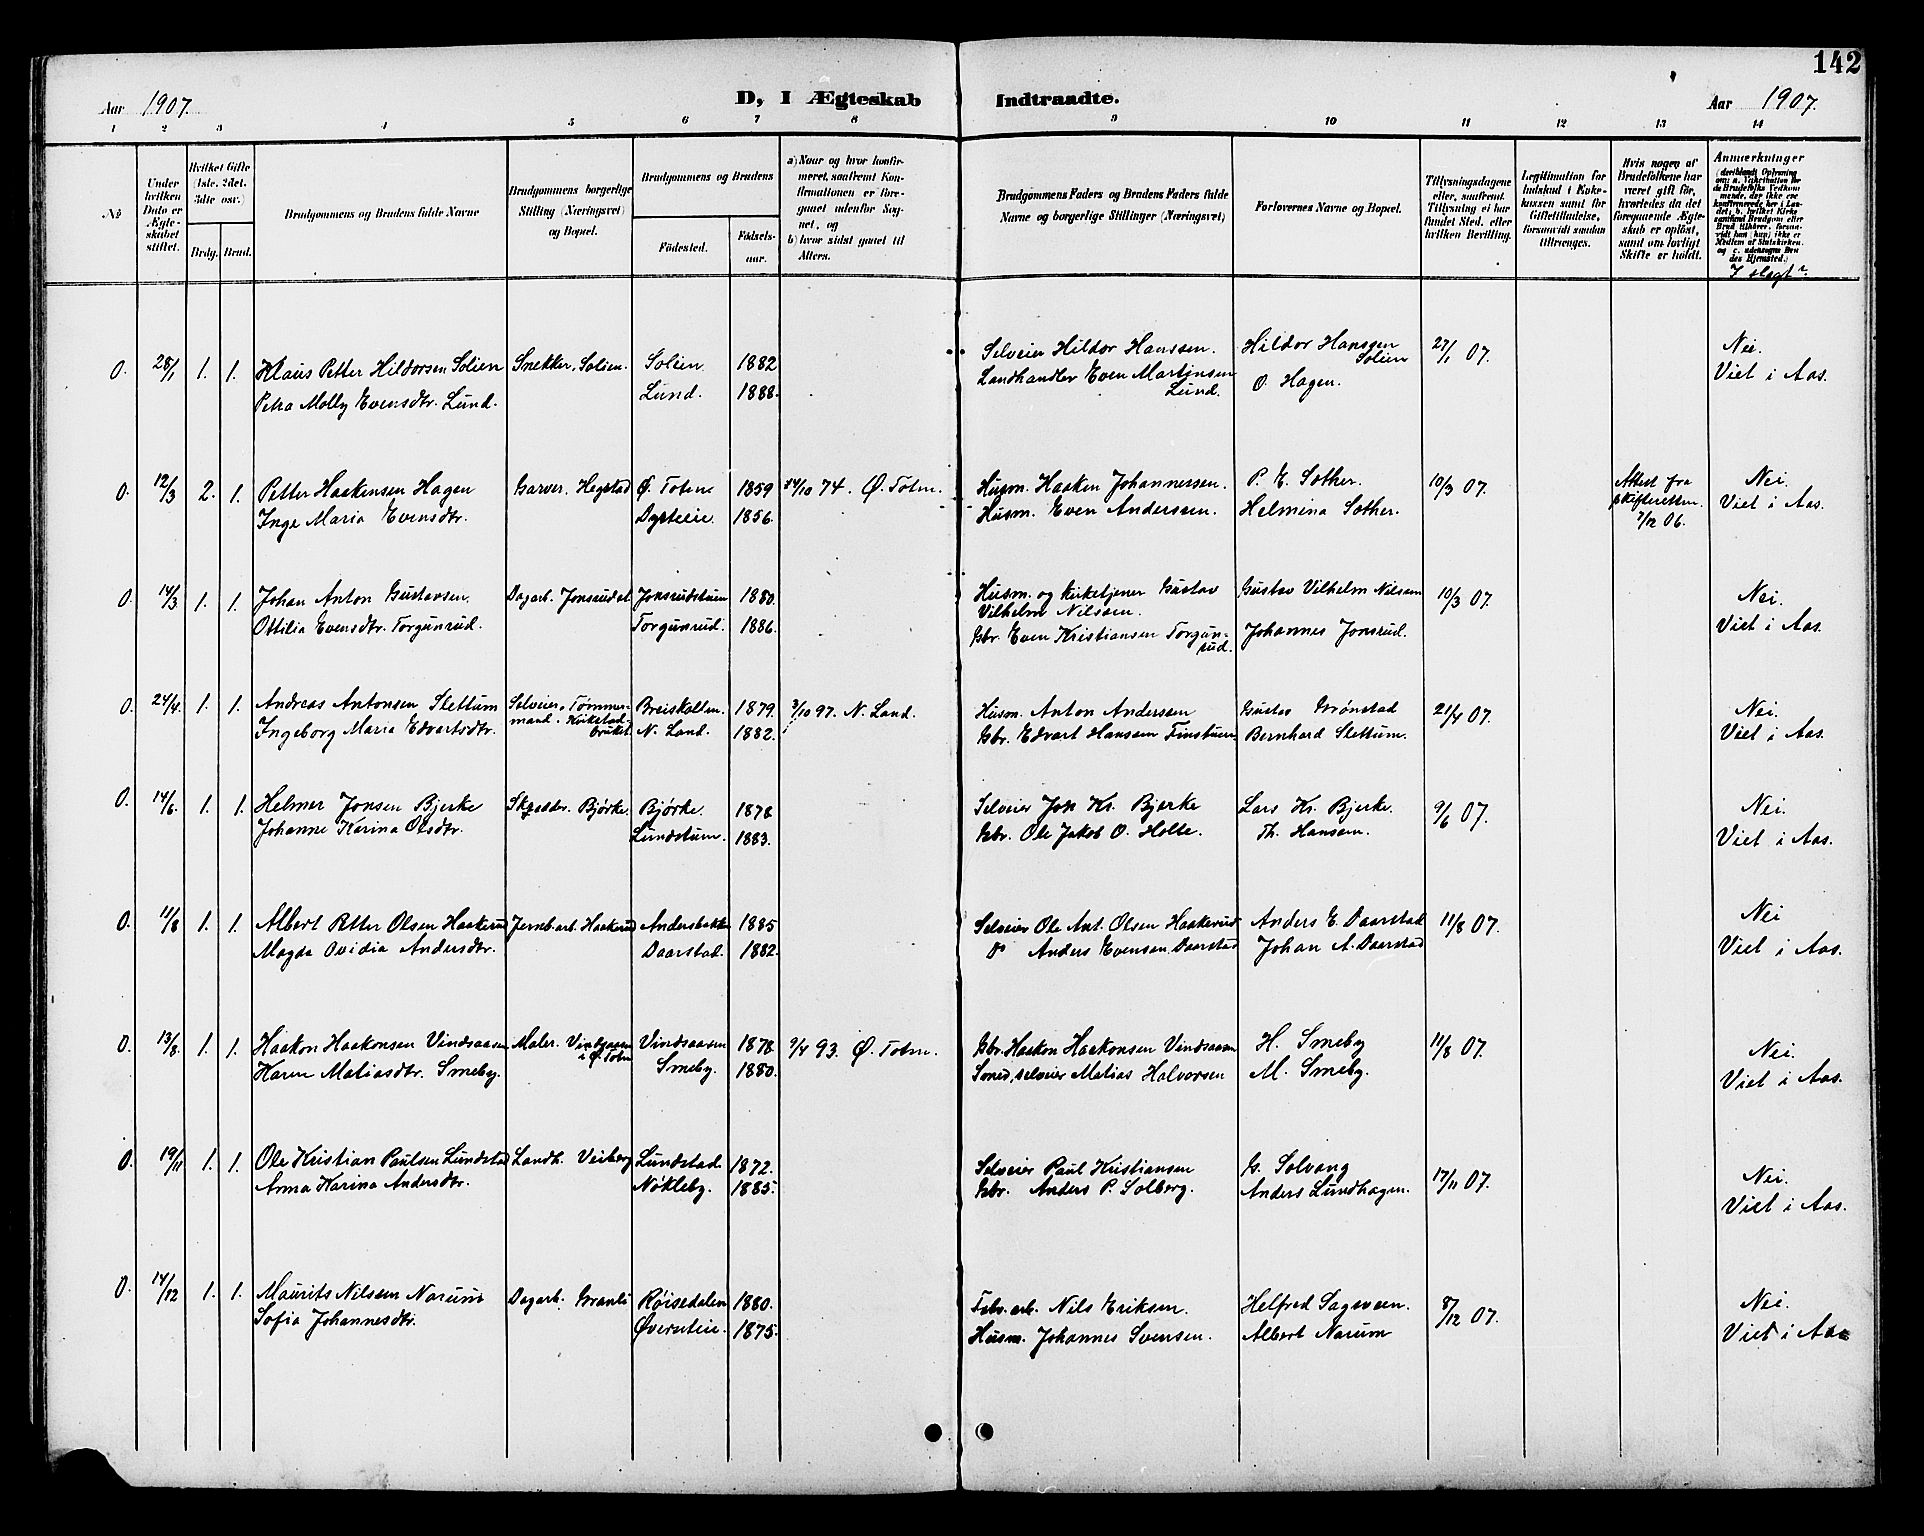 142
Aar 1907. D, I Ægteskab Indtraadte. Aar 1907.
1 2 3 4 5 6 7 8 9 10 11 12 13 14
No
Under hvilken Dato er Ægteskabet stiftet.
Hvilket Gifte (1ste, 2det, 3die osv.)
Brdg. Brud.
Brudgommens og Brudens fulde Navne
Brudgommens borgerlige Stilling (Næringsvei) og Bopæl.
Brudgommens og Brudens
Fødested. Fødselsaar.
a) Naar og hvor konfirmeret, saafremt Konfirmationen er foregaaet udenfor Sognet, og
b) hvor sidst gaaet til Alters.
Brudgommens Faders og Brudens Faders fulde Navne og borgerlige Stillinger (Næringsvei)
Forlovernes Navne og Bopæl.
Tillysningsdagene eller, saafremt Tillysning ei har fundet Sted, efter hvilken Bevilling.
Legitimation for Indskud i Enkekassen samt for Giftetilladelse, forsaavidt saadan tiltrænges.
Hvis nogen af Brudefolkene har været gift før, hvorledes da det foregaaende Ægteskab er opløst, samt om lovligt Skifte er holdt.
Anmærkninger
I slægt?
0. 28/1 1. 1. Klaus Petter Hildorsen Solien Snekker, Solien. Solien 1882 Selveier Hildor Hanssen. Hildor Hansen Solien 27/1 07. Nei.
Petra Molly Evensdtr. Lund. Lund. 1888. Landhandler Even Martinsen Lund. O. Hagen. Viet i Aas.
0. 12/3 2. 1. Petter Haakensen Hagen Garver. Hegstad Ø. Toten 1859 14/10 74. Ø. Toten. Husm. Haaken Johannersen. P. E. Sother. 10/3 07. Attest fra skifteretten 7/12 06. Nei.
Inge Maria Evensdtr. Dysteeie. 1856. Husm. Even Anderssen. Helmina Sother. Viet i Aas.
0. 14/3 1. 1. Johan Anton Gustavsen. Dagarb. Jonsrudet Jonsrudstuen 1880. Husm. og Kirketjener Gustav Vilhelm Nilsen. Gustav Vilhelm Nilsen 10/3 07. Nei.
Ottilia Evensdtr. Torgunrud. Torgunrud. 1886. Gbr. Even Kristiansen Torgunrud. Johannes Jonsrud. Viet i Aas.
0. 24/4. 1. 1. Andreas Antonsen Slettum Selveier, Tømmermand. Kirkstadbruket Breiskallen. 1879. 3/10 97. N. Land. Husm. Anton Anderssen Gustav Grønstad 21/4 07. Nei.
Ingeborg Maria Edvartsdtr. N. Land. 1882. Gbr. Edvart Hanssen Finstuen. Bernhard Slettum. Viet i Aas.
0. 14/6. 1. 1. Helmer Jonsen Bjerke Skrædder. Bjørke. Bjørke. 1878 Selveier Jon Kr. Bjerke Lars Kr. Bjerke. 9/6 07. Nei.
Johanne Karina Olsdtr. Lundstuen. 1883. Gbr. Ole Jakob O. Holte. Th. Hansen. Viet i Aas.
0. 11/8 1. 1. Albert Petter Olsen Haakerud Jernb.arb. Haakerud Andersbakken 1885 Selveier Ole Ant. Olsen Haakerud Anders E. Daarstad 11/8 07. Nei
Magda Ovidia Andersdtr. Daarstad. 1882. Do Anders Evensen Daarstad Johan A. Daarstad Viet i Aas.
0. 13/8. 1. 1. Haakon Haakonsen Vindsaasen Maler. Vindsaasen i Ø. Toten Vindsaasen 1878 9/4 93. Ø. Toten. Gbr. Haakon Haakonsen Vindsaasen H. Smeby 11/8 07. Nei.
Karen Matiasdtr. Smeby. Smeby. 1880. Smed, selveier Matias Halvorsen M. Smeby. Viet i Aas.
0. 19/11 1. 1. Ole Kristian Paulsen Lundstad Landh. Veiberg Lundstad. 1872. Selveier Paul Kristiansen G. Solvang 17/11 07. Nei.
Anna Karina Andersdtr. Nøkleby. 1885. Gbr. Anders P. Solberg. Anders Lundhagen. Viet i Aas.
0. 14/12 1. 1. Maurits Nilssen Narum Dagarb. Granli Røisedalen 1880. Fabr. arb. Nils Eriksen. Helfred Sagsveen. 8/12 07. Nei.
Sofia Johannesdtr. Øverneie. 1875. Husm. Johannes Svensen. Albert Narum Viet i Aas